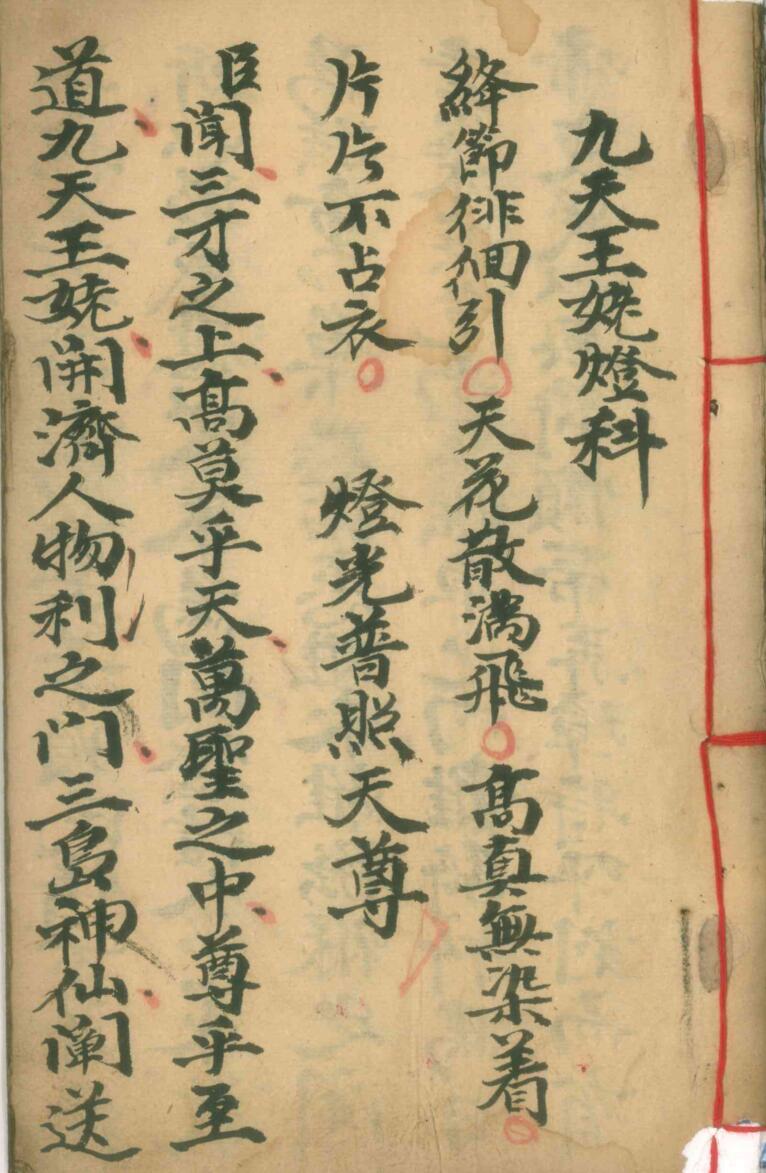 九天王姥燈科
絳節徘徊引天花散滿飛高真無染着
片片不占衣燈光普照天尊
臣聞三才之上髙莫乎天萬聖之中尊乎至
道九天王姥開濟人物利之门三島神仙闡送